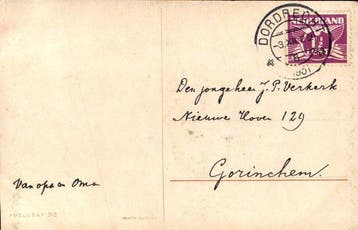 DORDRECHT
1931
NEDERLAND
1½
Den jongeheer J. P. Verkerk
Nieuwe Haven 129
Gorinchem.
Van opa en Oma